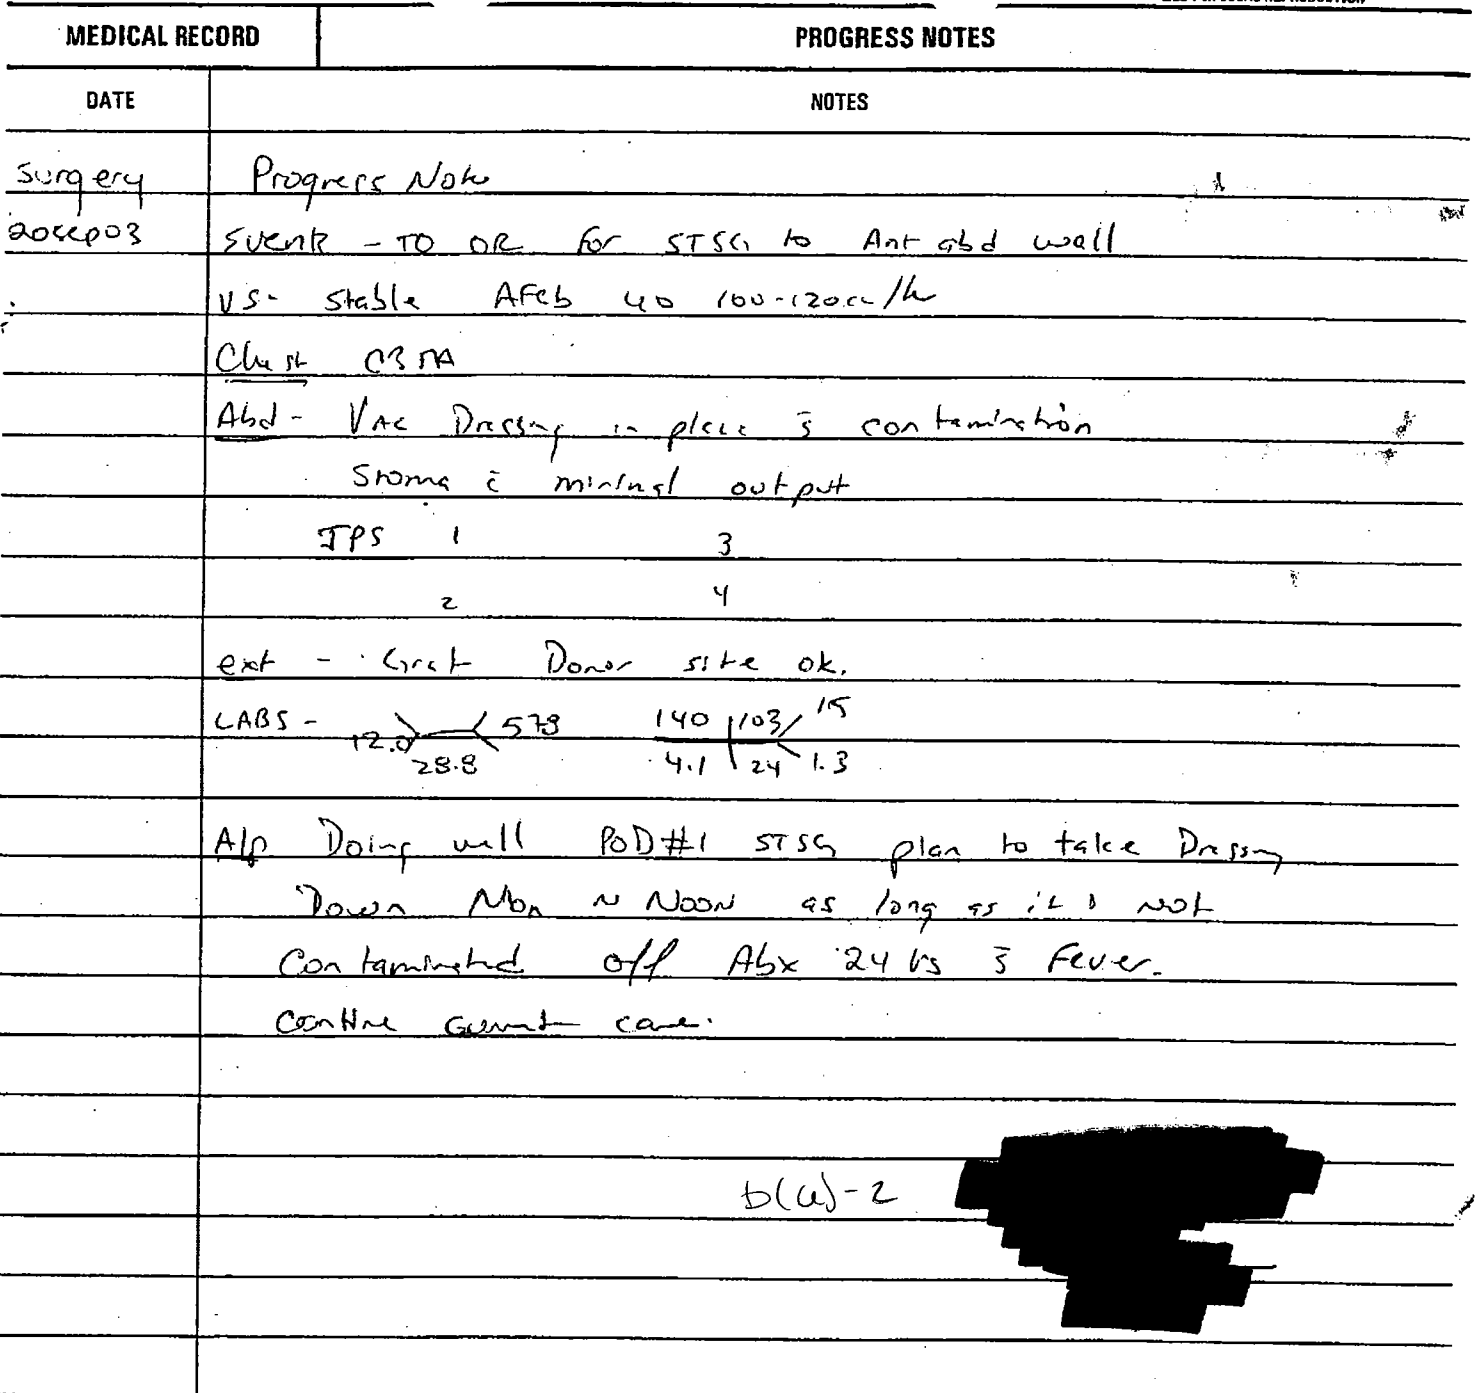 MEDICAL RECORD PROGRESS NOTES
DATE NOTES
Surgery Progress Note
20Sep03 Events - TO OR for STSG to Ant abd wall
VS - Stable AFeb UO 100-120cc/hr
Chest CBTA
Abd - VAC Dressing in place s̄ contamination
Stoma c̄ minimal output
JPS 1 3
2 4
ext - Graft Donor site ok.
LABS - 12.0 578 140 103 15
28.8 4.1 24 1.3
A/P Doing well POD#1 STSG plan to take Dressing
Down Mon ~ Noon as long as it is not
Contaminated off Abx 24 hrs s̄ Fever.
Continue current care.
b(6)-2